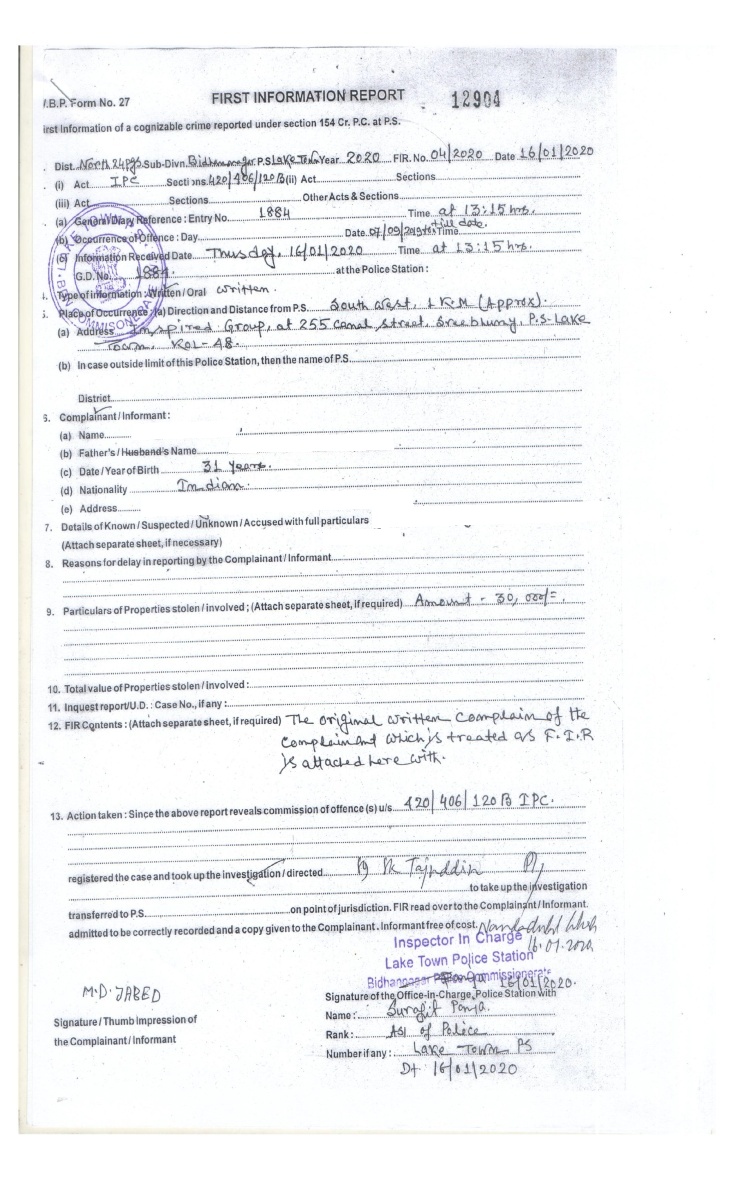 W.B.P. Form No. 27 FIRST INFORMATION REPORT 12904
First Information of a cognizable crime reported under section 154 Cr. P.C. at P.S.
Dist. North 24 Pgs Sub-Divn. Bidhannagar P.S Lake Town Year 2020 FIR. No. 04/2020 Date 16/01/2020
(i) Act IPC Sections 420/406/120B (ii) Act Sections
(iii) Act Sections Other Acts & Sections
(a) General Diary Reference : Entry No. 1884 Time at 13:15 hrs.
(b) Occurrence of Offence : Day Date 07/09/2019 to Time till date.
(c) Information Received Date Thusday, 16/01/2020 Time at 13:15 hrs.
G.D. No. 1884. at the Police Station :
4. Type of information : Written / Oral written.
5. Place of Occurrence : (a) Direction and Distance from P.S. South West, 1 K.M (Approx).
(a) Address Inspired Group, at 255 Canal Street, Sreebhumy, P.S- Lake
Town, KOL- 48.
(b) In case outside limit of this Police Station, then the name of P.S.
District
6. Complainant / Informant :
(a) Name
(b) Father's / Husband's Name
(c) Date / Year of Birth 31 Years.
(d) Nationality Indian.
(e) Address
7. Details of Known / Suspected / Unknown / Accused with full particulars
(Attach separate sheet, if necessary)
8. Reasons for delay in reporting by the Complainant / Informant
9. Particulars of Properties stolen / involved ; (Attach separate sheet, if required) Amount - 30,000/=.
10. Total value of Properties stolen / involved :
11. Inquest report/U.D. : Case No., if any :
12. FIR Contents : (Attach separate sheet, if required) The original written complain of the
complainant which is treated as F.I.R
is attached here with.
13. Action taken : Since the above report reveals commission of offence (s) u/s. 420/406/120B IPC.
registered the case and took up the investigation / directed Sk Tajuddin
to take up the investigation
transferred to P.S. on point of jurisdiction. FIR read over to the Complainant / Informant.
admitted to be correctly recorded and a copy given to the Complainant. Informant free of cost.
Inspector In Charge 16.01.2020
Lake Town Police Station
Bidhannagar Police Commissionerate 16/01/2020.
M.D. JABED
Signature of the Office-in-Charge, Police Station with
Name : Surajit Panja.
Signature / Thumb Impression of
Rank : ASI of Police
the Complainant / Informant
Number if any : Lake Town PS
Dt 16/01/2020